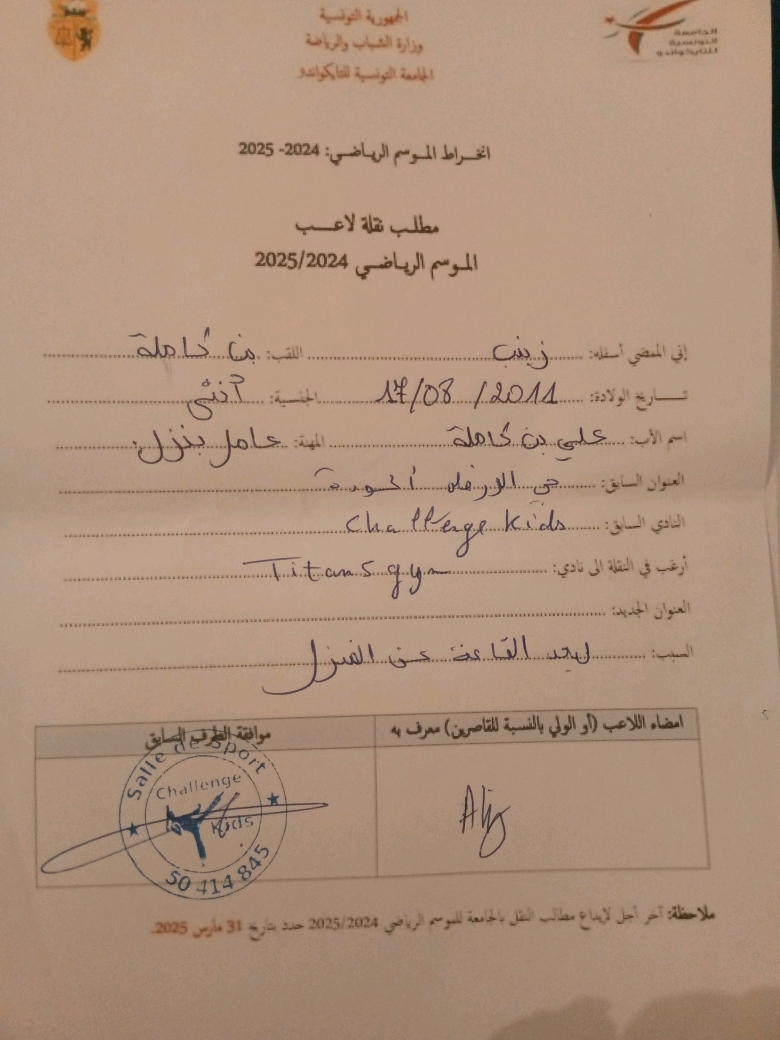 الجمهورية التونسية
وزارة الشباب والرياضة
الجامعة التونسية للتايكواندو
الجامعة
التونسية
للتايكواندو
انخراط الموسم الرياضي: 2024- 2025
مطلب نقلة لاعب
الموسم الرياضي 2025/2024
إني الممضي أسفله: زينب اللقب: بن
تاريخ الولادة: 17/08/2011 الجنسية: أنثى
اسم الأب: علي بن المهنة: عامل بنزل
العنوان السابق: حي
النادي السابق: Challenge Kids
أرغب في النقلة الى نادي: Titans gym
العنوان الجديد:
السبب: لبعد القاعة عن المنزل
امضاء اللاعب (أو الولي بالنسبة للقاصرين) معرف به
موافقة الطرف السابق
Aly
Salle de Sport
Challenge
Kids
50 414 845
ملاحظة: آخر أجل لإيداع مطالب النقل بالجامعة للموسم الرياضي 2025/2024 حدد بتاريخ 31 مارس 2025.